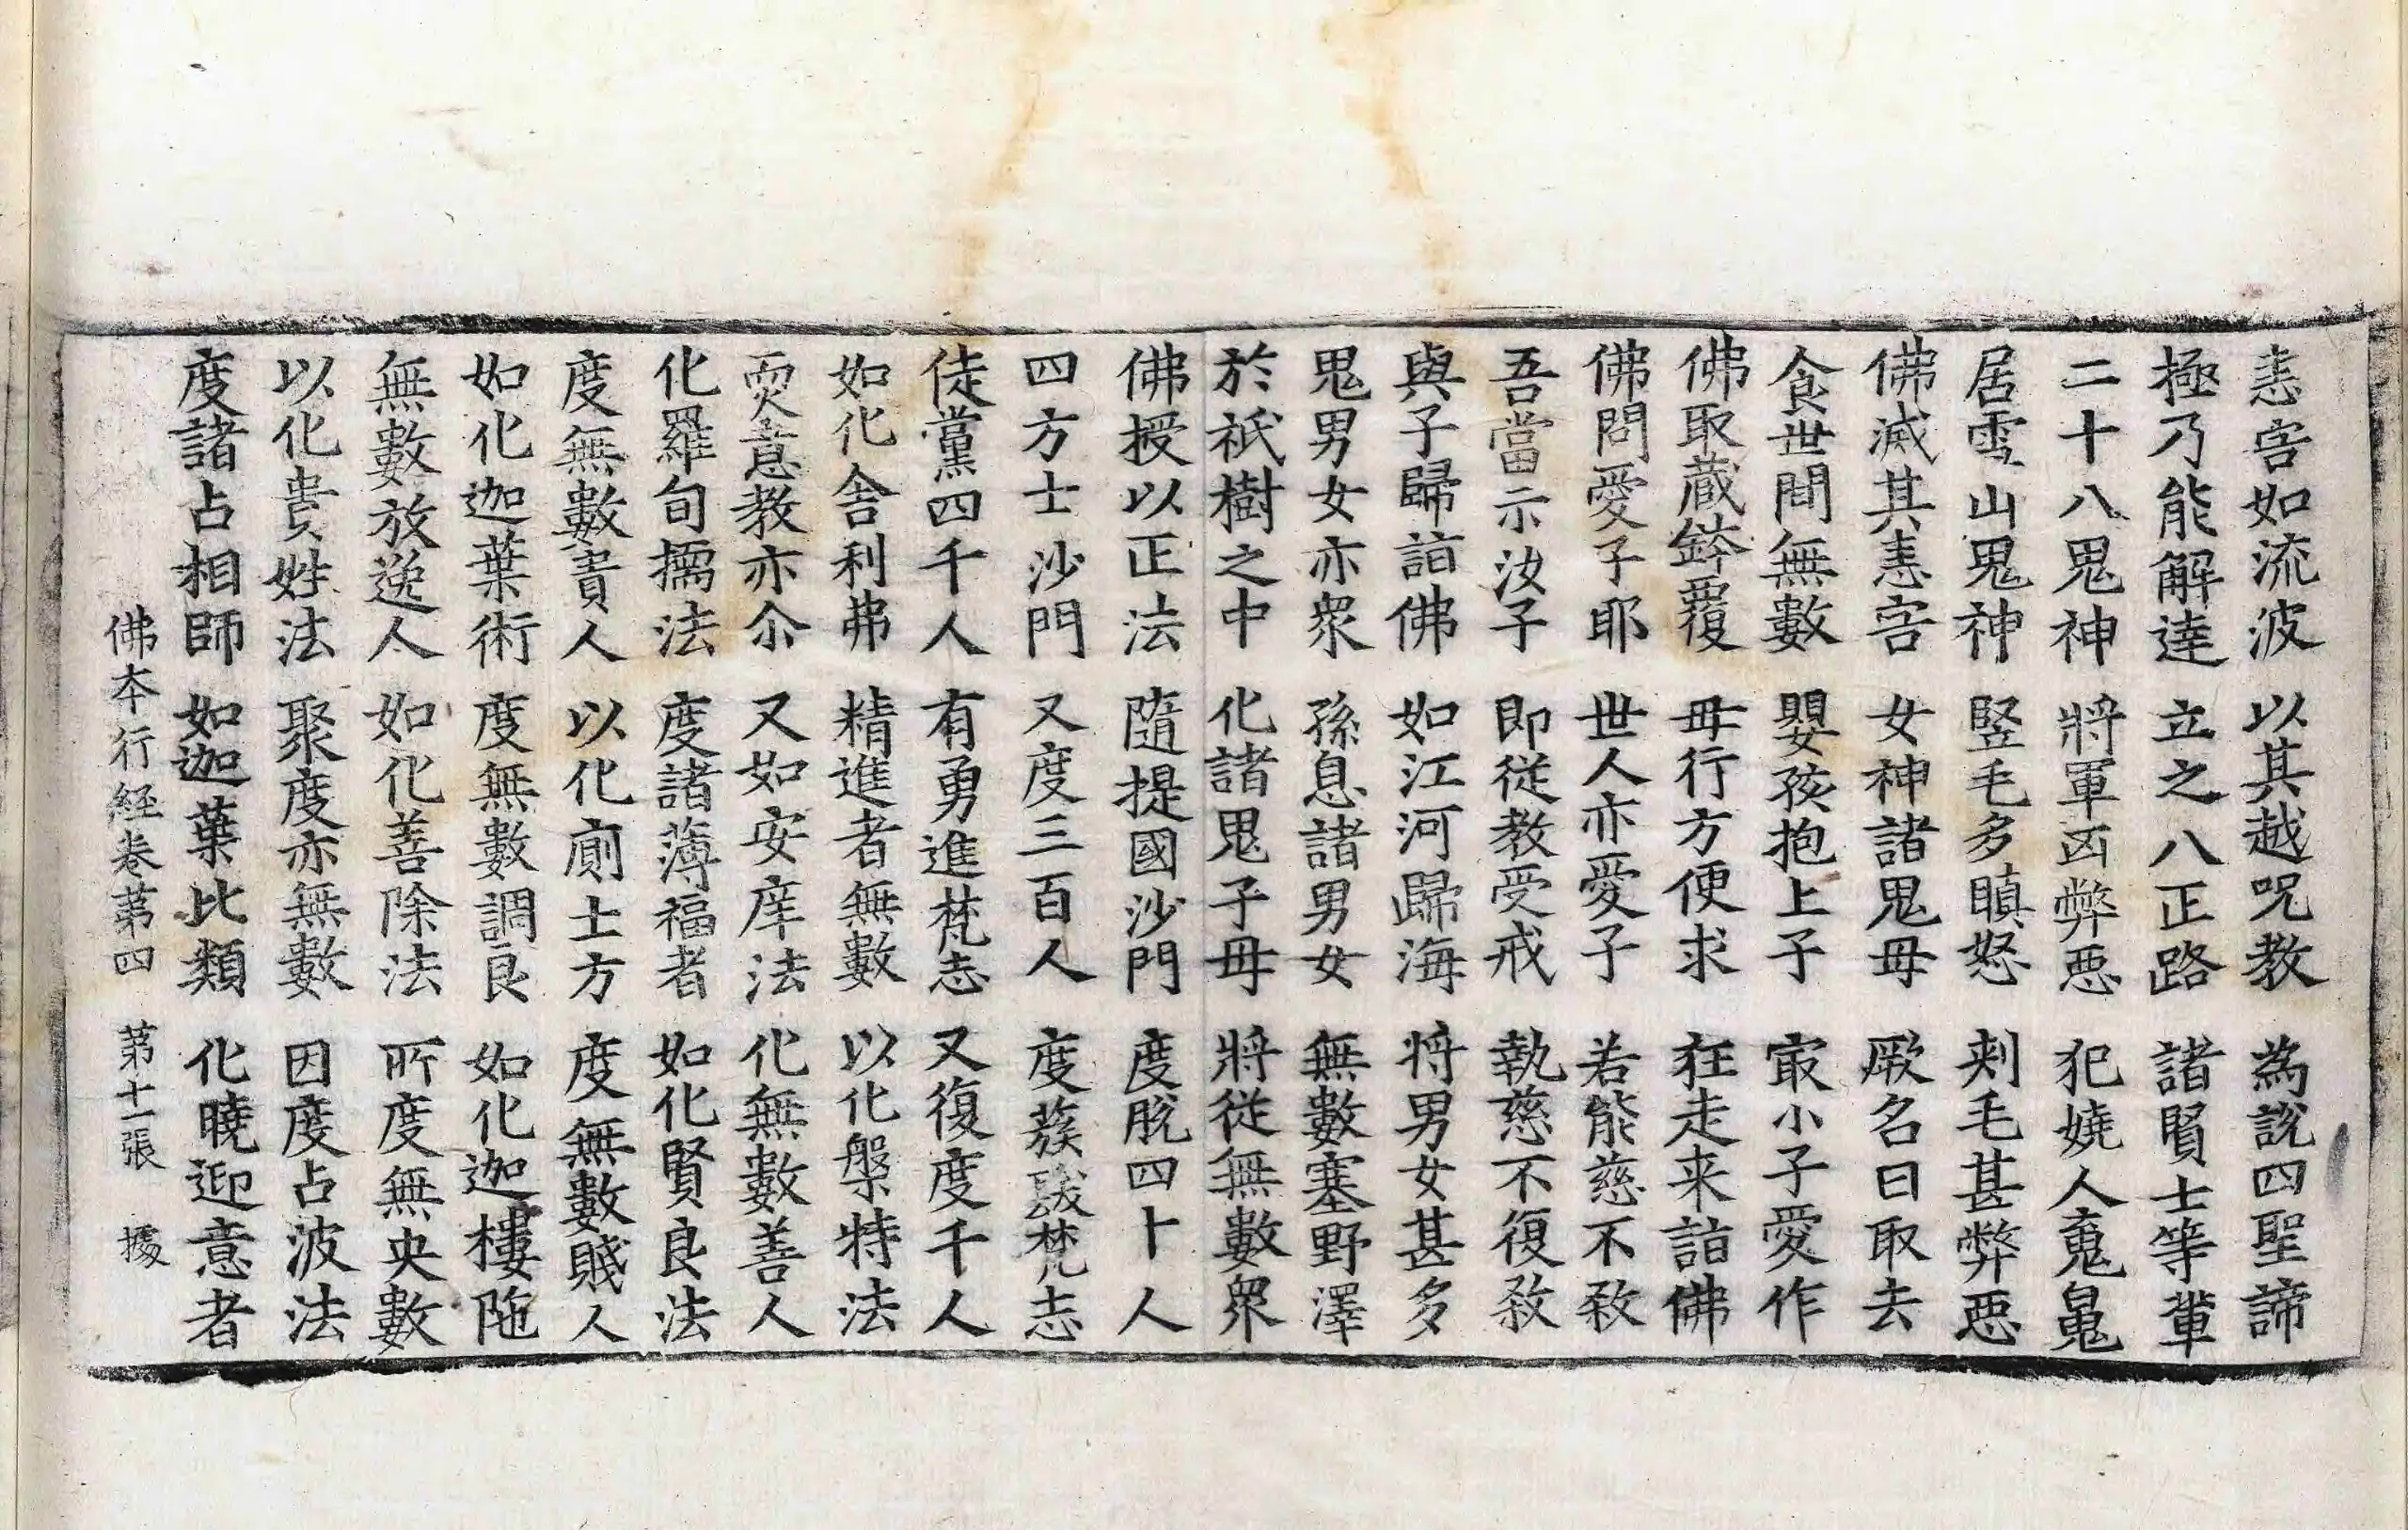 恚害如流波 以其越呪教 為說四聖諦
極乃能解達 立之八正路 諸賢士等輩
二十八鬼神 將軍凶弊惡 犯嬈人鬼
居雪山鬼神 竪毛多瞋怒 剌毛甚弊惡
佛滅其恚害 女神諸鬼母 厥名曰取去
食世間無數 嬰孩抱上子 㝡小子愛作
佛取藏鉢覆 母行方便求 狂走来詣佛
佛問愛子耶 世人亦愛子 若能慈不煞
吾當示汝子 即從教受戒 執慈不復煞
與子歸詣佛 如江河歸海 将男女甚多
鬼男女亦眾 孫息諸男女 無數塞野澤
於祇樹之中 化諸鬼子母 將從無數眾
佛授以正法 隨提國沙門 度脫四十人
四方士沙門 又度三百人 度蔟梵志
徒黨四千人 有勇進梵志 又復度千人
如化舍利弗 精進者無數 以化槃特法
耎意教亦尒 又如安庠法 化無數善人
化羅旬擩法 度諸薄福者 如化賢良法
度無數貴人 以化廁士方 度無數賤人
如化迦葉術 度無數調良 如化迦樓陁
無數放逸人 如化善除法 所度無央數
以化貴姓法 聚度亦無數 因度占波法
度諸占相師 如迦葉比類 化曉迎意者
佛夲行経卷第四 第十一張 㨿